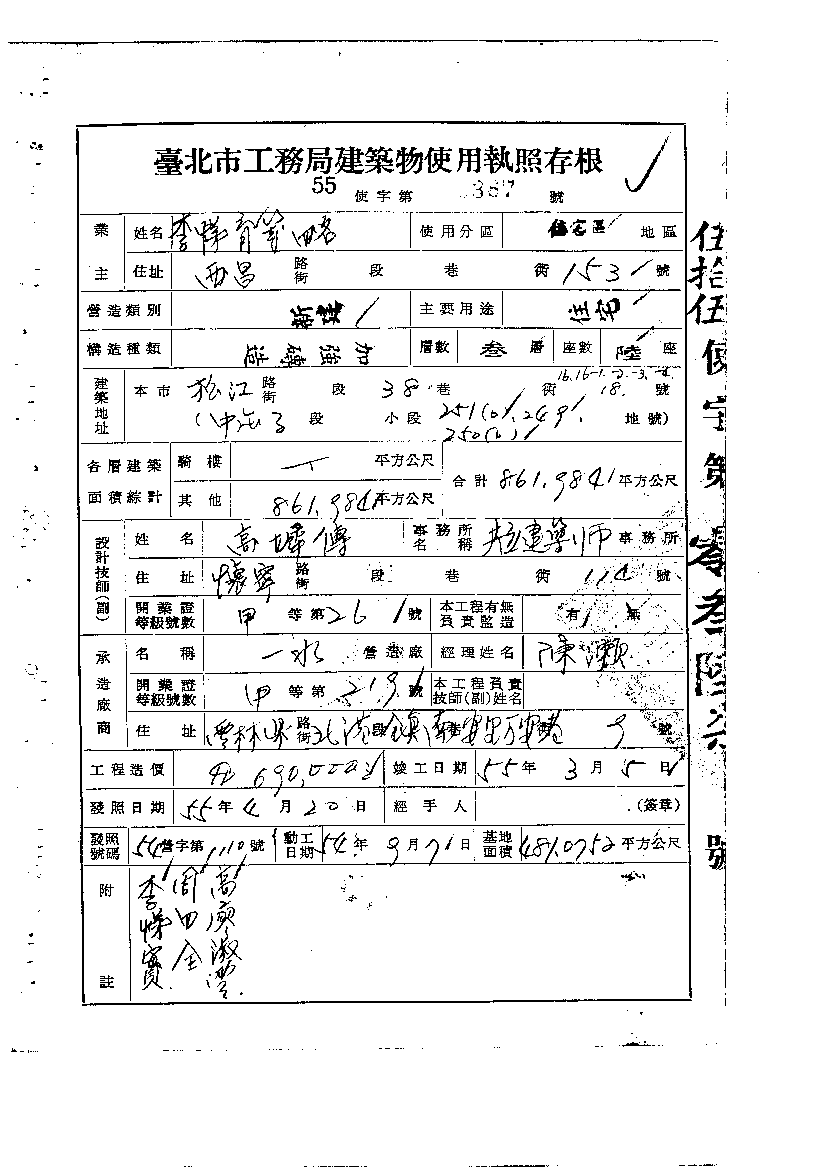 臺北市工務局建築物使用執照存根
55 使字第 367 號
業主 姓名 李悌育等四名 使用分區 住宅區 地區
住址 西昌 路街 段 巷 街 153 號
營造類別 新建 主要用途 住宅
構造種類 加強磚造 層數 叁 層 座數 陸 座
16.16-1.-2.-3.-4.
建築地址 本市 松江 路街 段 38 巷 街 18. 號
(中 段 小段 251(0) 249 地號)
250(0)
各層建築面積綜計 騎樓 平方公尺 合計 861.984 平方公尺
其他 861.984 平方公尺
設計技師(副) 姓名 高 傳 事務所名稱 建築師 事務所
住址 懷寧 路街 段 巷 街 114 號
開業證等級號數 甲 等第 261 號 本工程有無負責監造 有 無
承造廠商 名稱 一水 營造廠 經理姓名 陳灝
開業證等級號數 甲 等第 219 號 本工程負責技師(副)姓名
住址 雲林縣 路街 北港 段鎮 巷 9 號
工程造價 690,000 竣工日期 55 年 3 月 5 日
發照日期 55 年 4 月 20 日 經手人 (簽章)
發照號碼 54 營字第 1110 號 動工日期 54 年 9 月 7 日 基地面積 481.0752 平方公尺
附註
高 淑
周田全
李悌寶
伍拾伍使字第零叁陸柒號